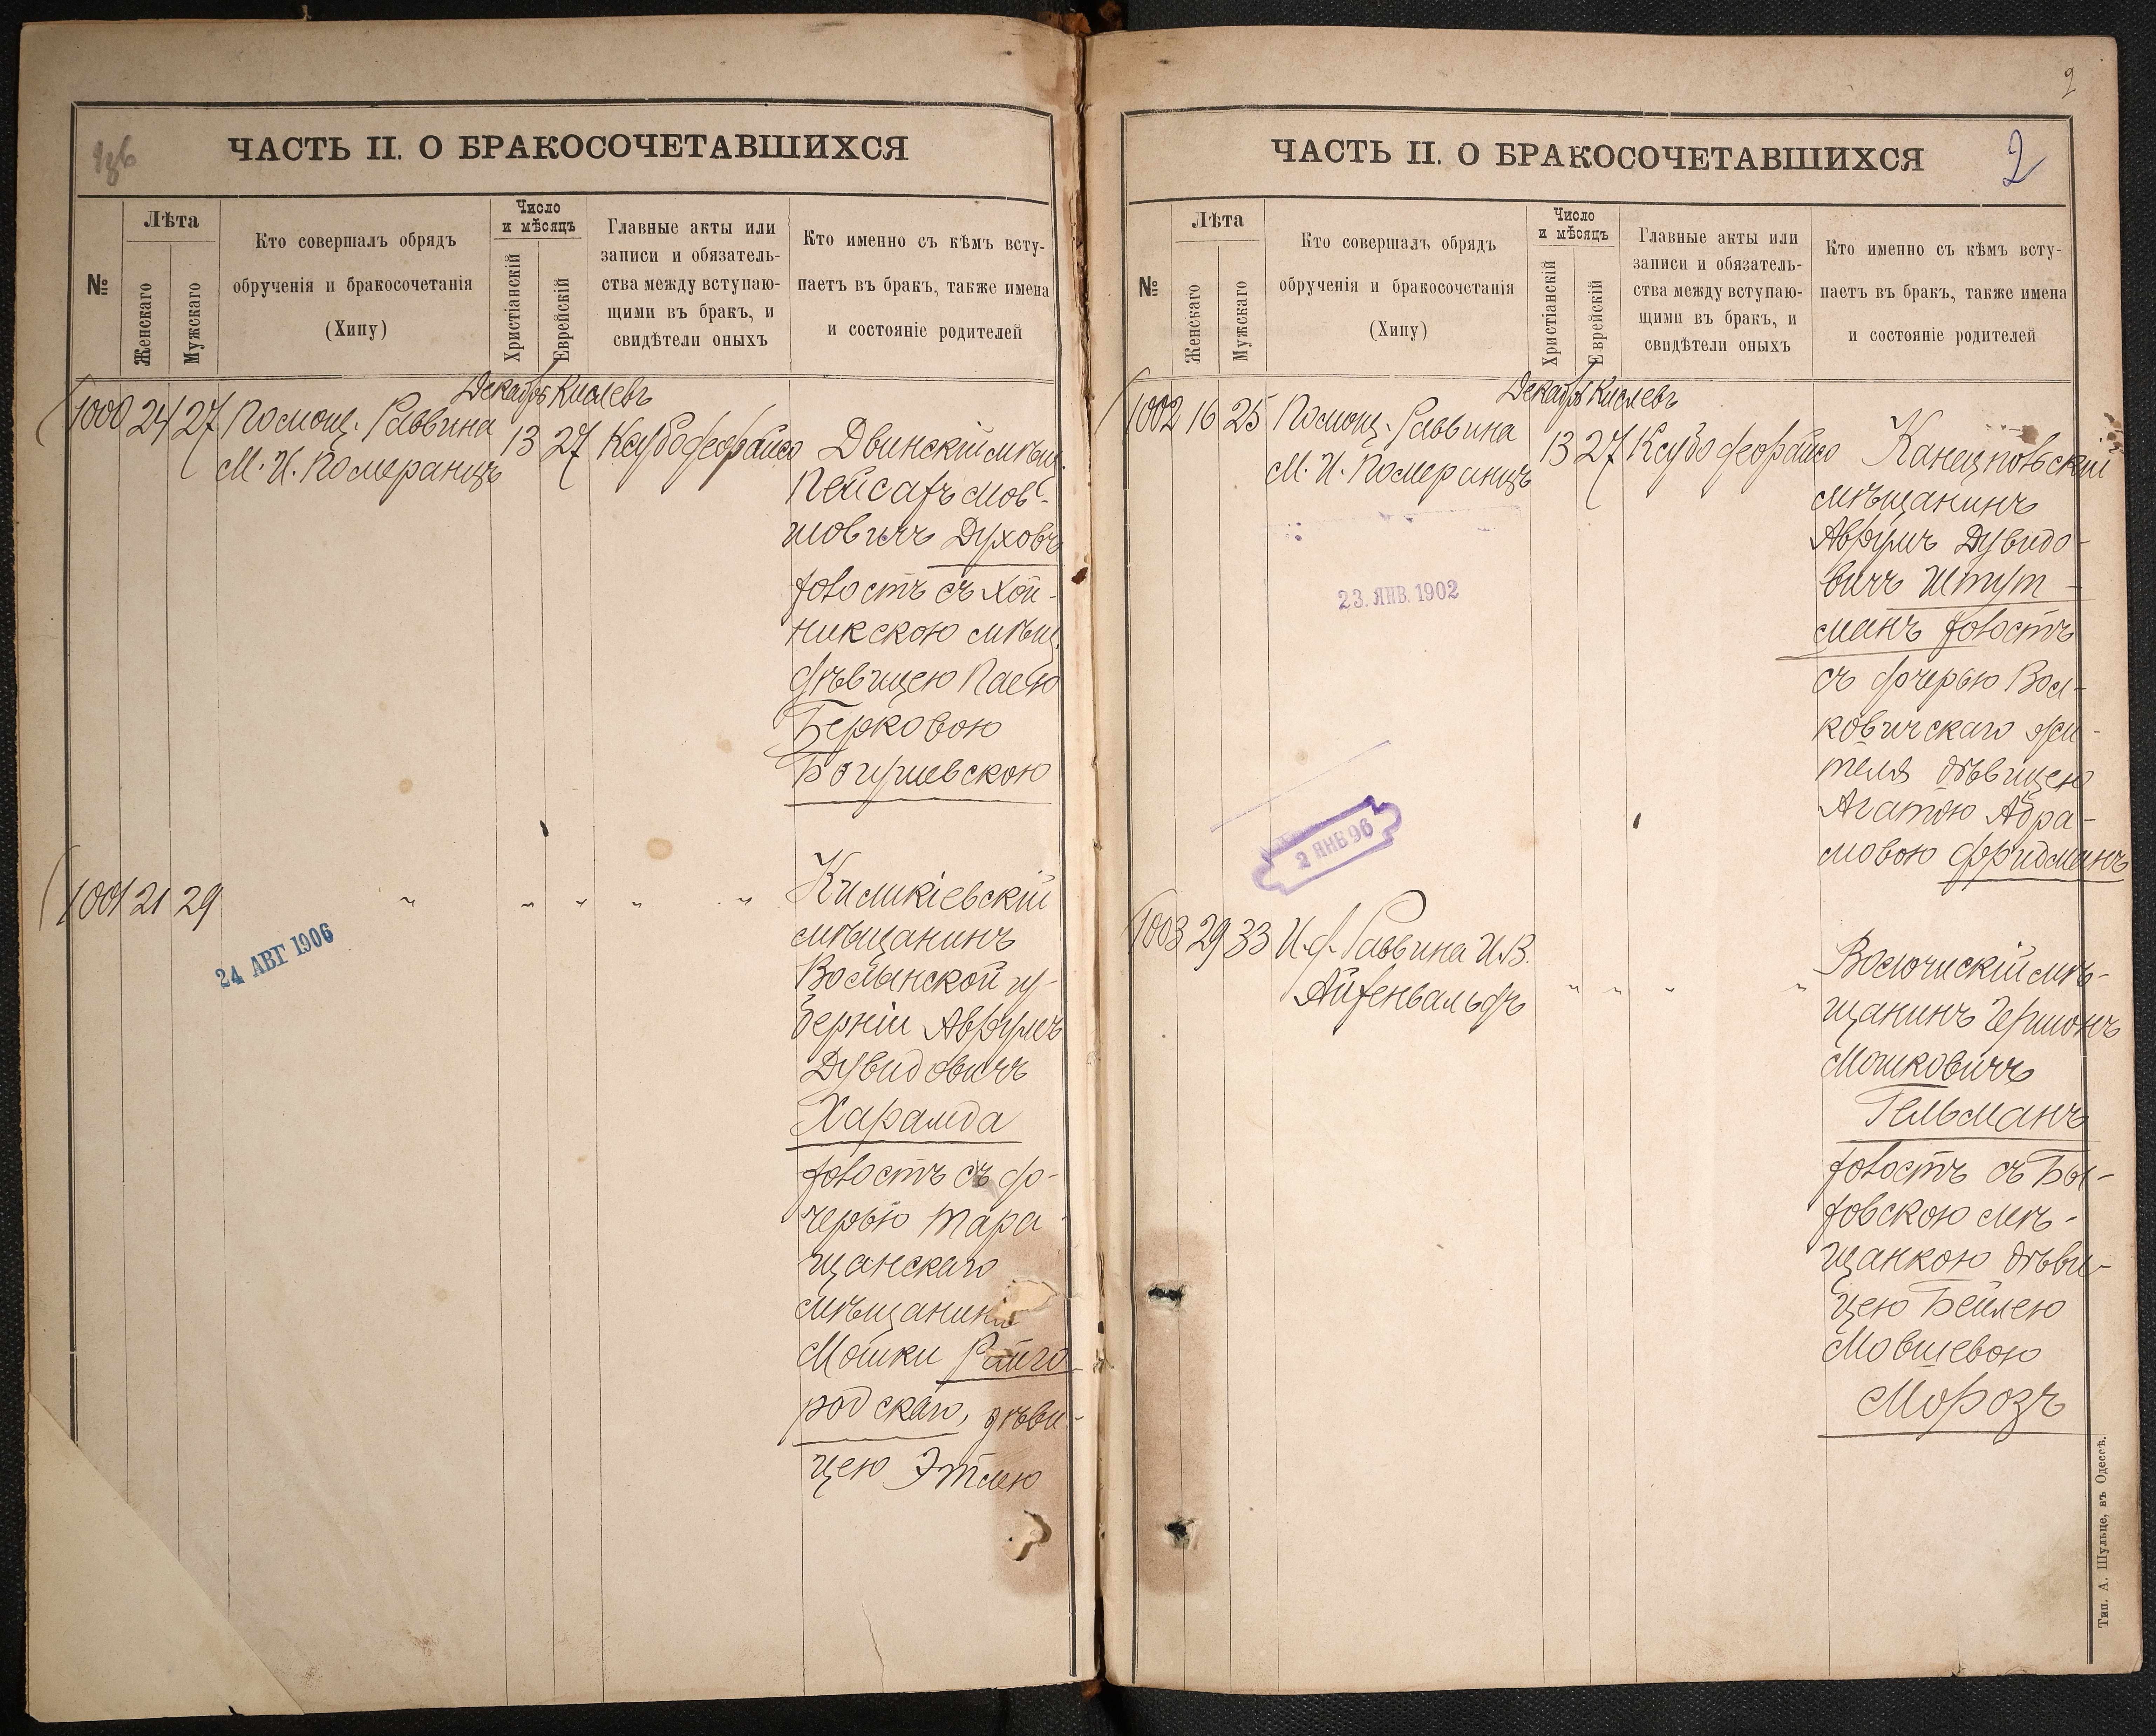 186
ЧАСТЬ II. О БРАКОСОЧЕТАВШИХСЯ
№
Лѣта
Женскаго
Мужскаго
Кто совершалъ обрядъ
обрученія и бракосочетанія
(Хипу)
Число
и мѣсяцъ
Христіанскій
Еврейскій
Главные акты или
записи и обязатель-
ства между вступаю-
щими въ бракъ, и
свидѣтели оныхъ
Кто именно съ кѣмъ всту-
паетъ въ бракъ, также имена
и состояніе родителей
Декабрь Кислевъ
1000 24 27 Помощ. Раввина 13 27
М. И. Померанцъ
Двинскій мѣщ.
Пейсахъ Мов-
шовичъ Духовъ
холостъ съ Хой-
никскою мѣщ.
дѣвицею Паею
Берковою
Богушевскою
1001 21 29 " " " " "
24 АВГ 1906
мѣщанинъ
Волынской гу-
берніи Аврумъ
Дувидовичъ
Харамда
холостъ съ до-
черью Тара-
щанскаго
мѣщанина
Мошки Райго-
родскаго, дѣви-
цею Этлею
2
ЧАСТЬ II. О БРАКОСОЧЕТАВШИХСЯ
2
№
Лѣта
Женскаго
Мужскаго
Кто совершалъ обрядъ
обрученія и бракосочетанія
(Хипу)
Число
и мѣсяцъ
Христіанскій
Еврейскій
Главные акты или
записи и обязатель-
ства между вступаю-
щими въ бракъ, и
свидѣтели оныхъ
Кто именно съ кѣмъ всту-
паетъ въ бракъ, также имена
и состояніе родителей
Декабрь Кислевъ
1002 16 25 Помощ. Раввина 13 27
М. И. Померанцъ
23. ЯНВ. 1902
Канецпольскій
мѣщанинъ
Аврумъ Дувидо-
вичъ Штут-
манъ холостъ
съ дочерью Вол-
ковичскаго жи-
теля дѣвицею
Агатою Абра-
мовою Фридманъ
2 ЯНВ 96
1003 29 33 И. д. Раввина И. В.
Айхенвальдъ " " " "
Волочискій мѣ-
щанинъ Гершонъ
Мошковичъ
Гельманъ
холостъ съ Бы-
ховскою мѣ-
щанкою дѣви-
цею Бейлею
Мовшевою
Морозъ
Тип. А. Шульце, въ Одессѣ.